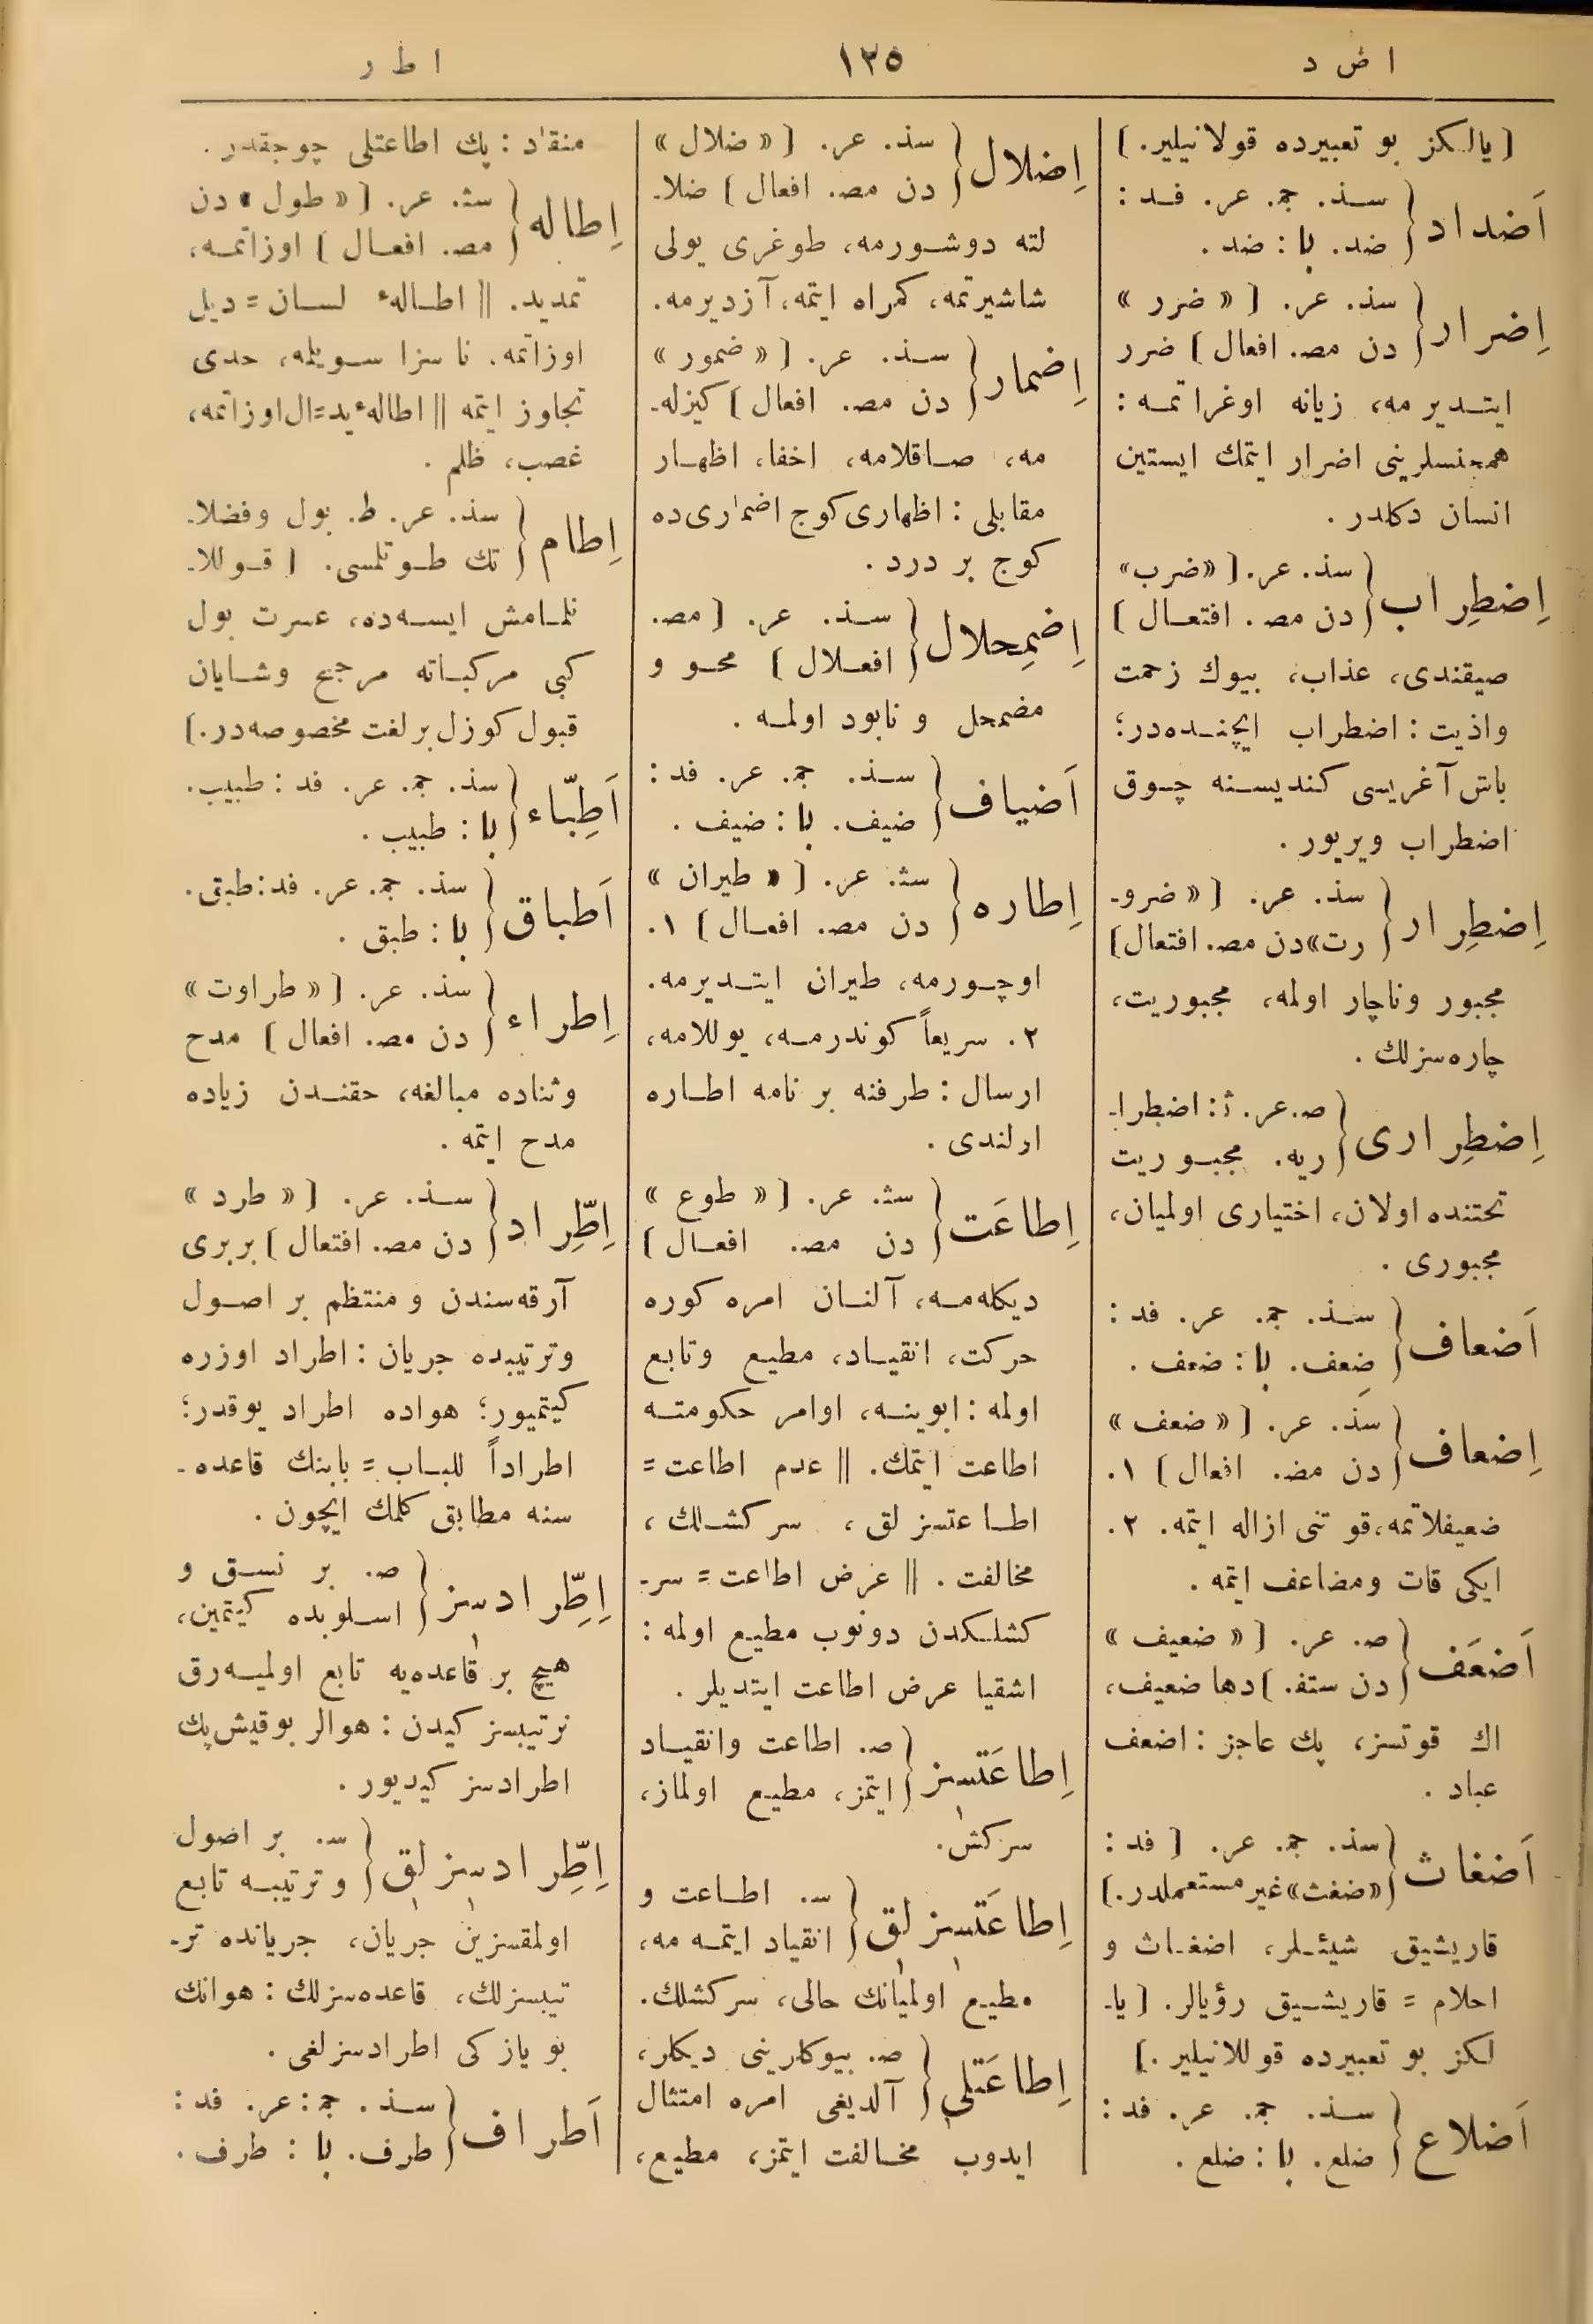 اض د
١٢٥
اط ر
[ يالكز بو تعبيرده قولانيلير. ]
اَضداد { سذ. جـ. عر. فد :
ضد. با : ضد .
اِضرار { سذ. عر. [ « ضرر »
دن مصـ. افعال ] ضرر
ايتديرمه، زيانه اوغراتمه :
همجنسلريني اضرار ايتمك ايستين
انسان دكلدر .
اِضطِراب { سذ. عر. [ «ضرب»
دن مصـ. افتعال ]
صيقندى، عذاب، بيوك زحمت
واذيت : اضطراب ايچنده‌در؛
باش آغريسى كنديسنه چوق
اضطراب ويريور .
اِضطِرار { سذ. عر. [ « ضرو-
رت» دن مصـ. افتعال ]
مجبور وناچار اولمه، مجبوريت،
چاره‌سزلك .
اِضطِرارى { صـ. عر. ث : اضطرا-
ريه. مجبوريت
تحتنده اولان، اختيارى اولميان،
مجبورى .
اَضعاف { سذ. جـ. عر. فد :
ضِعف. با : ضعف .
اِضعاف { سذ. عر. [ « ضعف »
دن مصـ. افعال ] ١.
ضعيفلاتمه، قوتنى ازاله ايتمه. ٢.
ايكى قات ومضاعف ايتمه .
اَضعَف { صـ. عر. [ « ضعيف »
دن ستفـ. ] دها ضعيف،
اك قوتسز، پك عاجز : اضعف
عباد .
اَضغاث { سذ. جـ. عر. [ فد :
«ضغث» غير مستعملدر. ]
قاريشيق شيئلر، اضغاث و
احلام = قاريشيق رؤيالر. [ يا-
لكز بو تعبيرده قوللانيلير. ]
اَضلاع { سذ. جـ. عر. فد :
ضلع. با : ضلع .
اِضلال { سذ. عر. [ « ضلال »
دن مصـ. افعال ] ضلا-
لته دوشورمه، طوغرى يولى
شاشيرتمه، كمراه ايتمه، آزديرمه.
اِضمار { سذ. عر. [ « ضمور »
دن مصـ. افعال ] كيزله-
مه، صاقلامه، اخفا، اظهار
مقابلى : اظهارى كوج اضمارى ده
كوج بر درد .
اِضمِحلال { سذ. عر. [ مصـ.
افعلال ] محو و
مضمحل و نابود اولمه .
اَضياف { سذ. جـ. عر. فد :
ضيف. با : ضيف .
اِطاره { سث. عر. [ « طيران »
دن مصـ. افعال ] ١.
اوچورمه، طيران ايتديرمه.
٢. سريعاً كوندرمه، يوللامه،
ارسال : طرفنه بر نامه اطاره
اولندى .
اِطاعَت { سث. عر. [ « طوع »
دن مصـ. افعال ]
ديكله‌مه، آلنان امره كوره
حركت، انقياد، مطيع وتابع
اولمه : ابوينه، اوامر حكومته
اطاعت ايتمك. || عدم اطاعت =
اطاعتسزلق ، سركشلك ،
مخالفت . || عرض اطاعت = سر-
كشلكدن دونوب مطيع اولمه :
اشقيا عرض اطاعت ايتديلر .
اِطاعَتسِز { صـ. اطاعت وانقياد
ايتمز، مطيع اولماز،
سركش.
اِطاعَتسِزلِق { سـ. اطاعت و
انقياد ايتمه مه،
مطيع اولميانك حالى، سركشلك.
اِطاعَتلى { صـ. بيوكلرينى ديكلر،
آلديغى امره امتثال
ايدوب مخالفت ايتمز، مطيع،
منقاد : پك اطاعتلى چوجقدر .
اِطاله { سث. عر. [ « طول » دن
مصـ. افعال ] اوزاتمه،
تمديد. || اطالهٔ لسان = ديل
اوزاتمه. ناسزا سويلمه، حدى
تجاوز ايتمه || اطالهٔ يد = ال اوزاتمه،
غصب، ظلم .
اِطام { سذ. عر. ط. بول وفضلا-
تك طوتلمسى. [ قوللا-
نلمامش ايسه‌ده، عسرت بول
كبى مركباته مرجح وشايان
قبول كوزل بر لغت مخصوصه‌در. ]
اَطِبّاء { سذ. جـ. عر. فد : طبيب.
با : طبيب .
اَطباق { سذ. جـ. عر. فد : طبق.
با : طبق .
اِطراء { سذ. عر. [ « طراوت »
دن مصـ. افعال ] مدح
وثناده مبالغه، حقندن زياده
مدح ايتمه .
اِطِّراد { سذ. عر. [ « طرد »
دن مصـ. افتعال ] بربرى
آرقه‌سندن و منتظم بر اصول
وترتيبده جريان : اطراد اوزره
كيتميور؛ هواده اطراد يوقدر؛
اطراداً للباب = بابنك قاعده-
سنه مطابق كلمك ايچون .
اِطِّرادسِز { صـ. بر نسق و
اسلوبده كيتمين،
هيچ بر قاعده‌يه تابع اولميه‌رق
ترتيبسز كيدن : هوالر بو قيش پك
اطرادسز كيديور .
اِطِّرادسِزلِق { سـ. بر اصول
و ترتيبه تابع
اولمقسزين جريان، جريانده تر-
تيبسزلك، قاعده‌سزلك : هوانك
بو يازكى اطرادسزلغى .
اَطراف { سذ. جـ : عر. فد :
طرف. با : طرف .